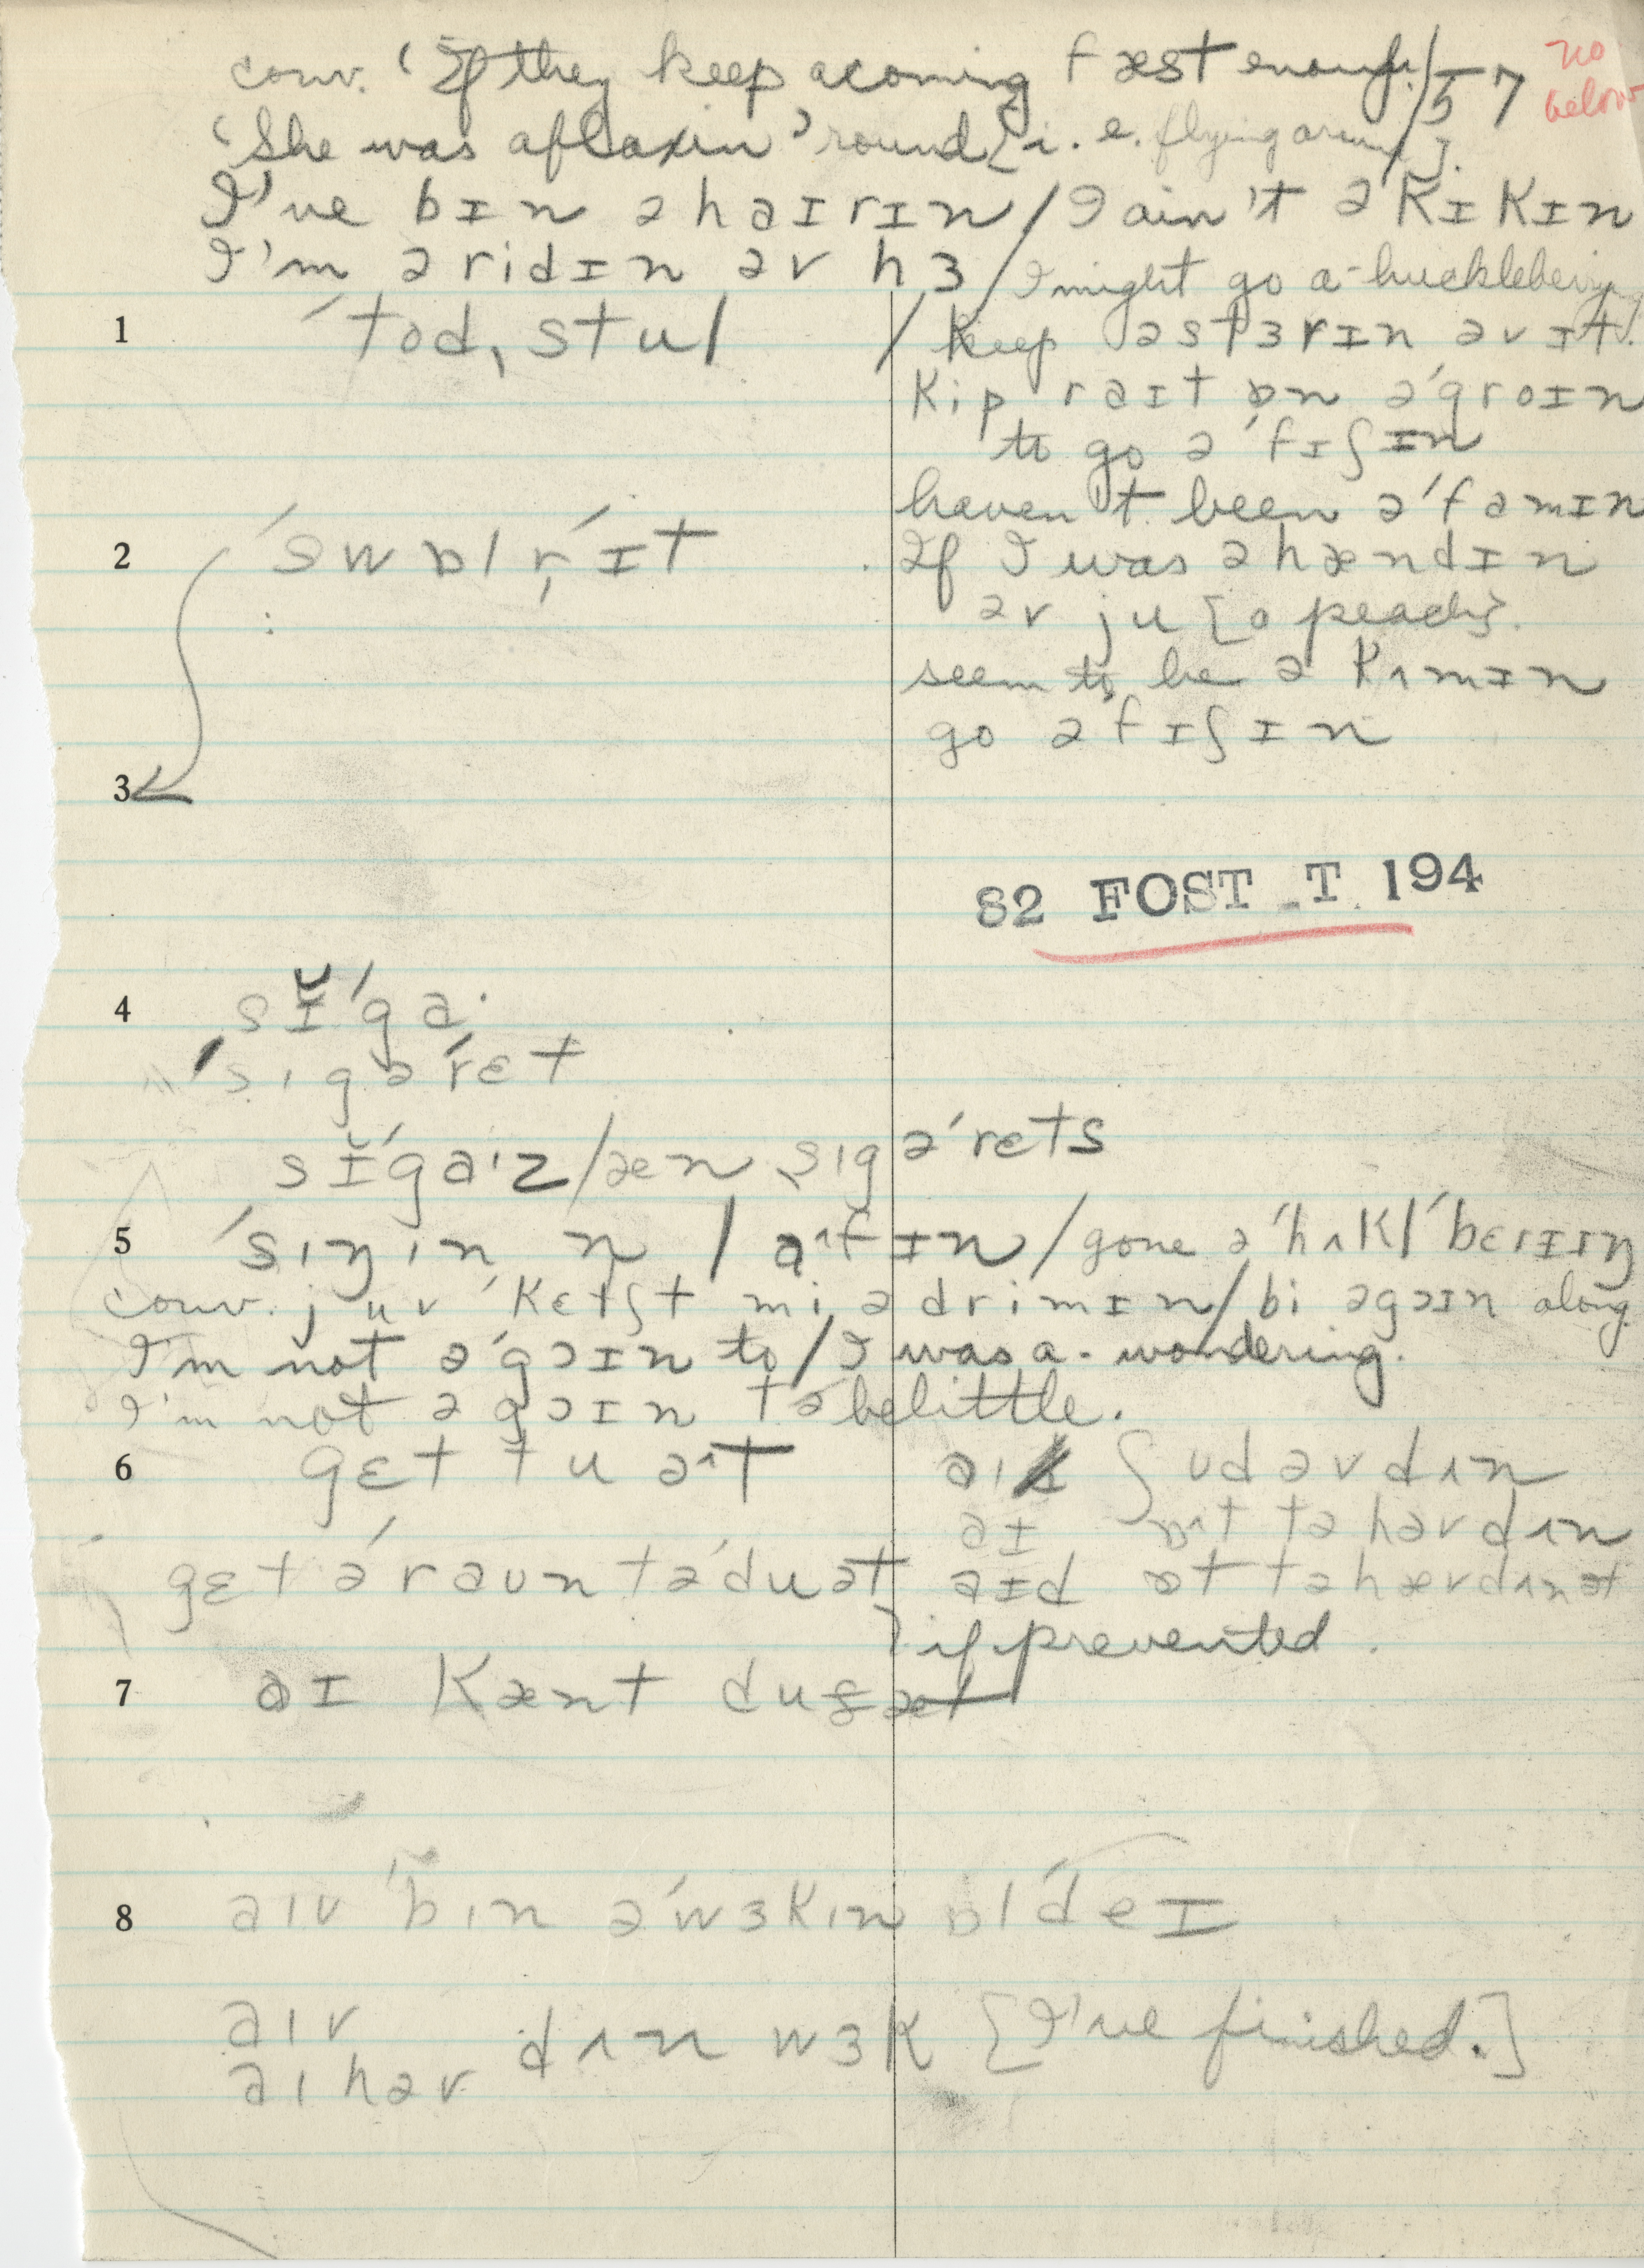 conv. 'If they keep acoming fæst enough./57 no below
'She was aflaxin' 'round [i.e. flying around].
I've bɪn əhaɪrɪn / I ain't ə kɪkɪn
I'm əridɪn əv hɜ / I might go a-huckleberrying
1 ´tod,stul / keep əstɜrɪn əv ɪt.
kip raɪt ɒn ə´groɪn
to go ə´fɪʃɪn
haven't been ə´famɪn
2 ´swɒlr̩´ɪt If I was əhændɪn
əv ju [a peach].
seem to be ə kʌmɪn
go əfɪʃɪn
3
82 FOST T 194
4 sɪ̆´ga·
´sɪgə´rɛt
sɪ̆´ga·z/æn sɪgə´rɛts
5 ´sɪŋɪn n laˆfɪn / gone ə´hʌkl´bɛrɪɪŋ
conv. juv ´kɛtʃt mi ədrimɪn / bi əgɔɪn along
I'm not ə´gɔɪn to / I was a-wondering.
I'm not əgɔɪn tə belittle.
6 gɛt tu əˆt aɪ ʃudəvdʌn
aɪ ɒˆt tə həvdʌn
gɛt ə´raʊn tə´duət aɪd ɒt tə hævdʌnət
} if prevented.
7 aɪ kænt du ət
8 aɪv ´bɪn ə´wɜkɪn ɒl´deɪ
aɪv
dʌn wɜk [I've finished.]
aɪ həv